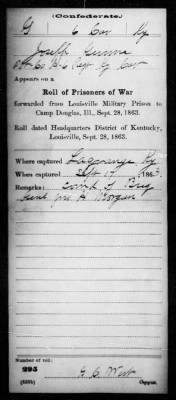 (Confederate.)
G 6 Cav Ky
Joseph
Co B 6 Regt Ky Cav
Appears on a
Roll of Prisoners of War
forwarded from Louisville Military Prison to
Camp Douglas, Ill., Sept. 28, 1863.
Roll dated Headquarters District of Kentucky,
Louisville, Sept. 28, 1863.
Where captured Lagrange Ky
When captured Sept 17, 1863.
Remarks: Comd of Brig
Genl Jno H Morgan
Number of roll:
295
(639b) Copyist.